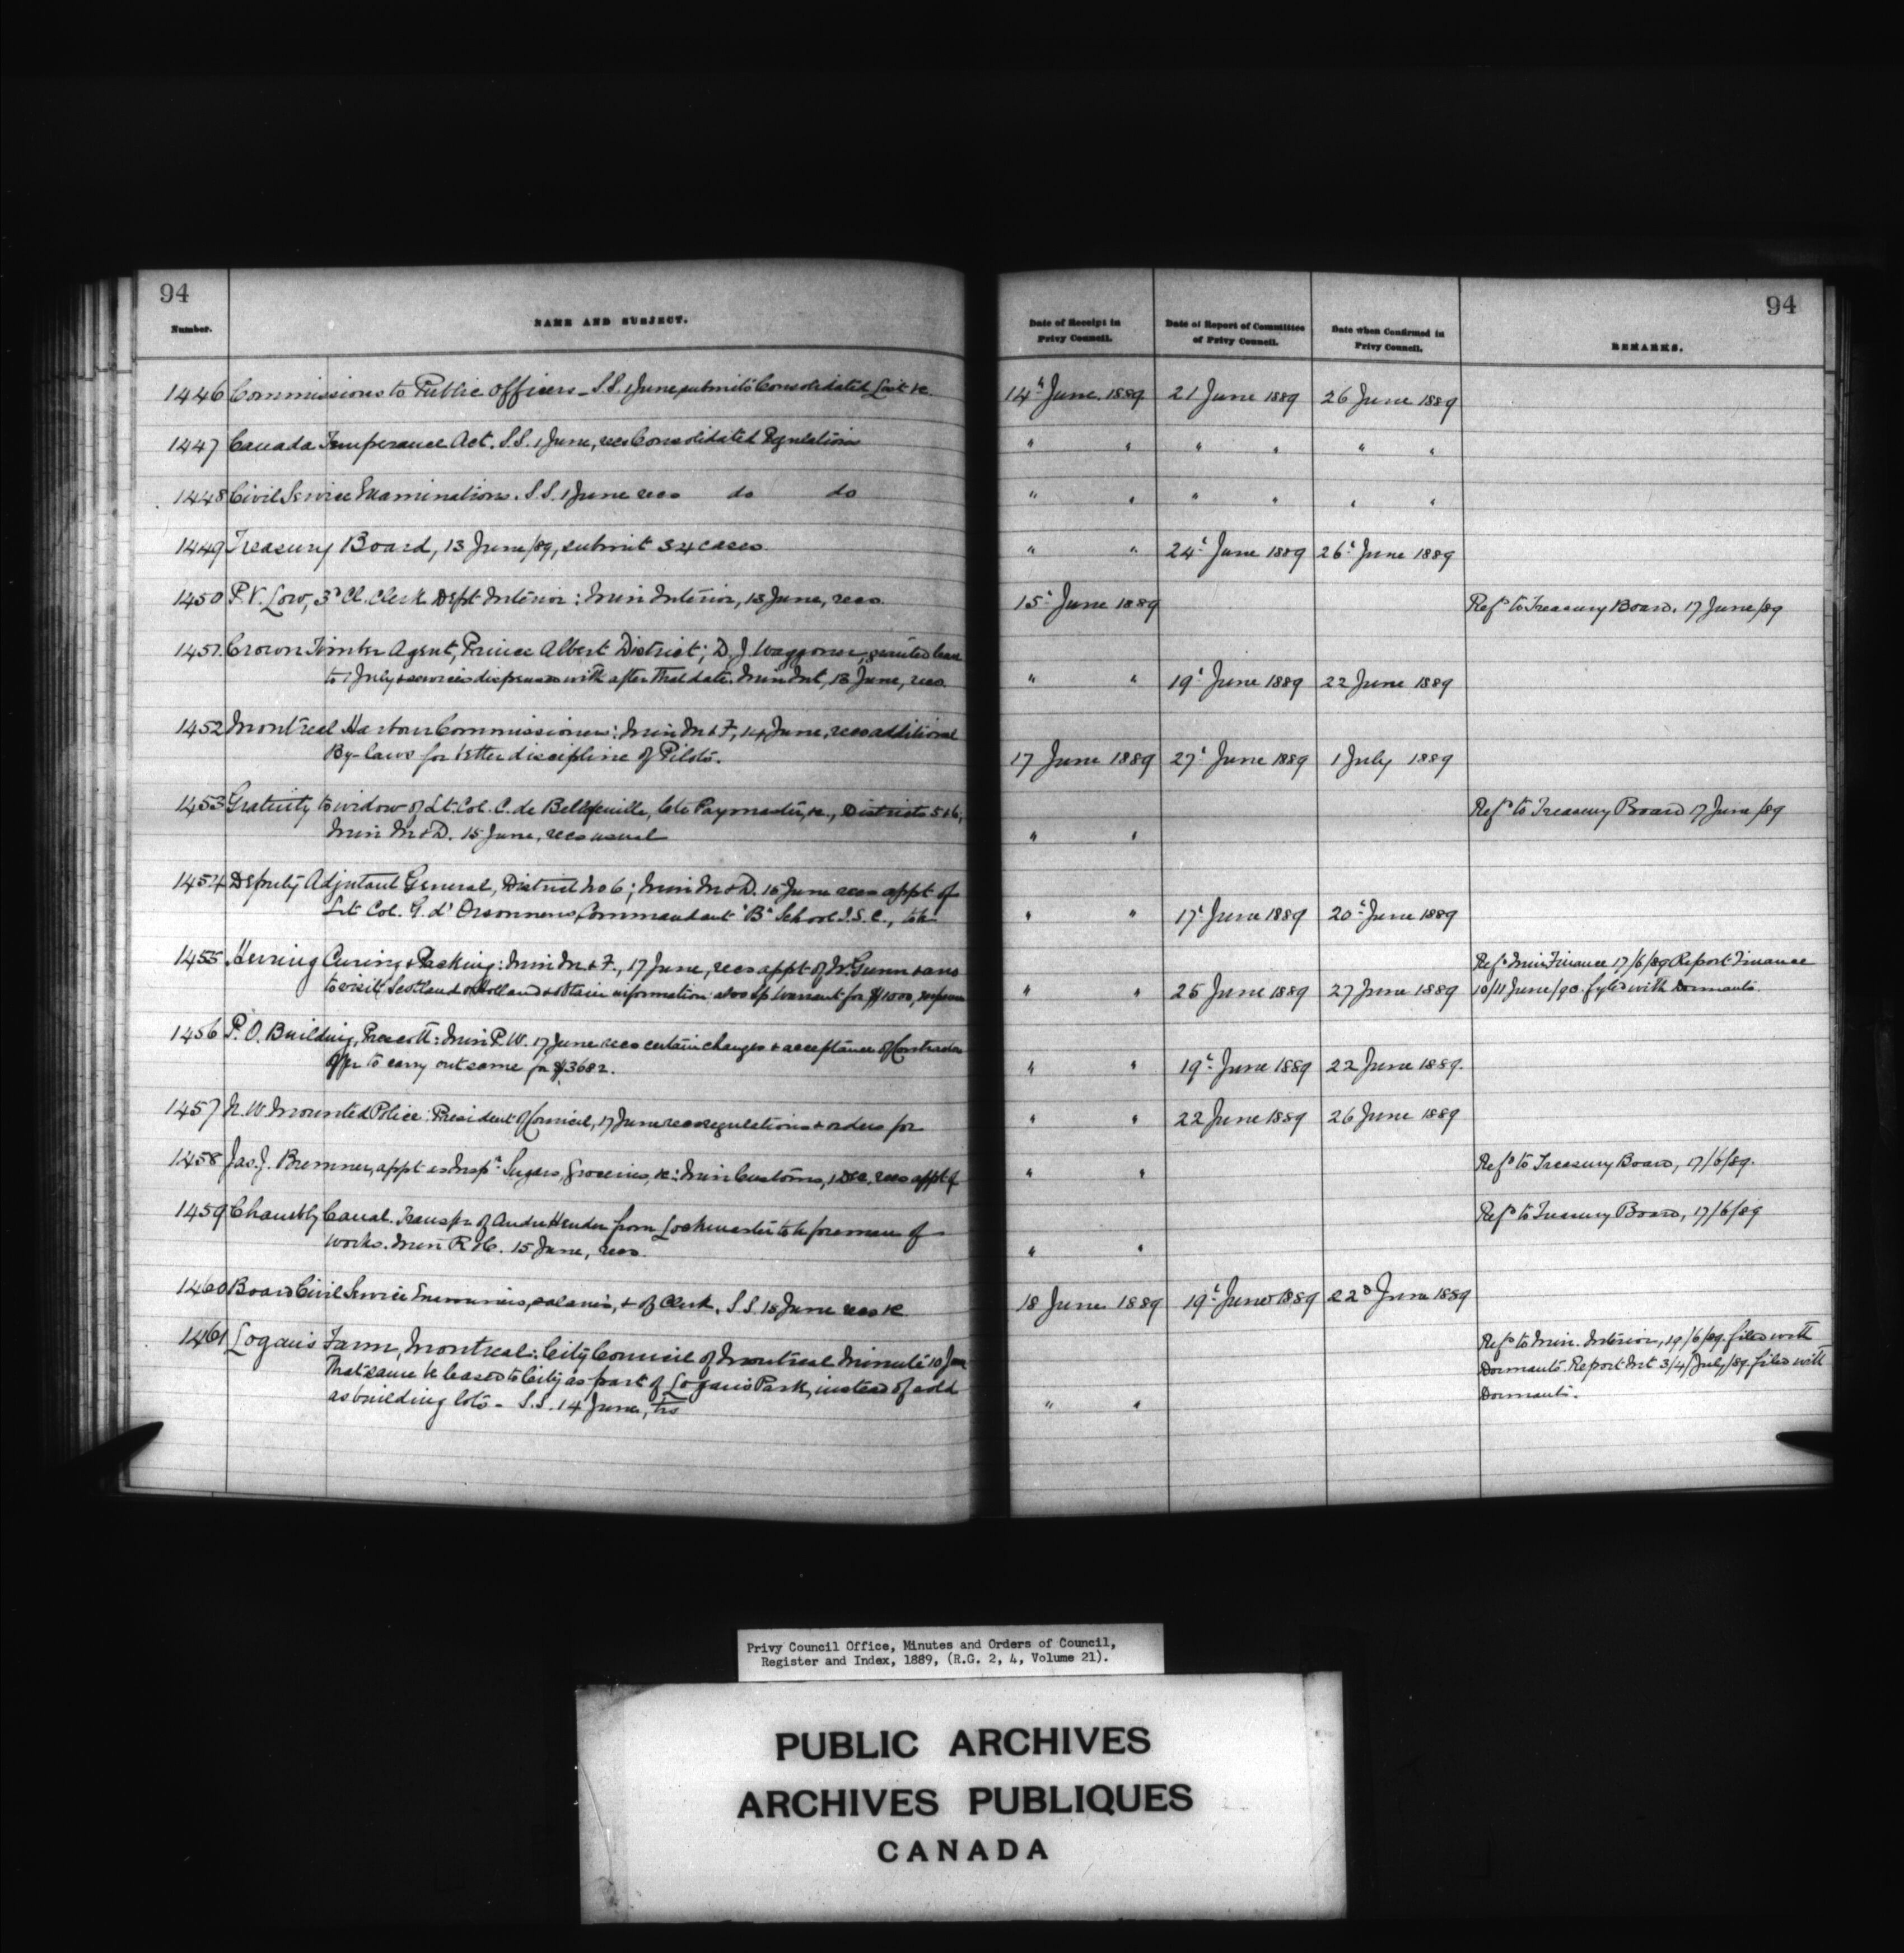 94
Number.
NAME AND SUBJECT.
1446 Commissions to Public Officers - S.S. 1 June, submits Consolidated List &c
1447 Canada Temperance Act. S.S. 1 June, recs Consolidated Regulations
1448 Civil Service Examinations. S.S. 1 June recs do do
1449 Treasury Board, 13 June/89, submit 34 cases.
1450 P.V. Low, 3d Cl. Clerk Dept Interior: Min Interior, 13 June, recs.
1451. Crown Timber Agent, Prince Albert District; D. J. Waggoner, granted leave
to 1 July & services dispensed with after that date. Min Int, 13 June, recs.
1452 Montreal Harbour Commissioners: Min M & F, 14 June, recs additional
By-laws for better discipline of Pilots.
1453 Gratuity to widow of Lt. Col. C. de Bellefeuille, late Paymaster, &c., Districts 5 & 6,
Min M & D. 15 June, recs usual
1454 Deputy Adjutant General, District No 6; Min M & D. 15 June recs appt of
Lt Col. G. d'Orsonnens, Commandant "B" School I.S.C., to be
1455. Herring Curing & Packing: Min M. & F., 17 June, recs appt of W. Gunn & ano
to visit Scotland & Holland & obtain information: also Sp Warrant for $1000,
1456 P.O. Building, Prescott: Min P.W. 17 June recs certain changes & acceptance of Contractors
offer to carry out same for $3682.
1457 N.W. Mounted Police: President of Council, 17 June recs regulations & orders for
1458 Jas. J. Bremner, appt as Inspr. Sugars, Groceries, &c: Min Customs, 1 Dec. recs appt of
1459 Chambly Canal. Transfer of Andre from Lockmaster to be foreman of
Works. Min R & C. 15 June, recs.
1460 Board Civil Service Examiners, salaries, & of Clerk. S.S. 18 June recs &c
1461 Logan's Farm, Montreal: City Council of Montreal Minute 10 June
that same be leased to City as part of Logan's Park, instead of sold
as building lots - S.S. 14 June, trs
94
Date of Receipt in
Privy Council.
Date of Report of Committee
of Privy Council.
Date when Confirmed in
Privy Council.
REMARKS.
14th June. 1889 21 June 1889 26 June 1889
" " " " " "
" " " " " "
" " 24th June 1889 26th June 1889
15th June 1889 Refd to Treasury Board. 17 June/89
" " 19th June 1889 22 June 1889
17 June 1889 27th June 1889 1 July 1889
Refd to Treasury Board 17 June/89
" "
" " 17th June 1889 20th June 1889
Refd Min Finance 17/6/89 Report Finance
" " 25 June 1889 27 June 1889 10/11 June/90. fyled with Dormants.
" " 19th June 1889 22 June 1889.
" " 22 June 1889 26 June 1889
" " Refd to Treasury Board, 17/6/89.
Refd to Treasury Board, 17/6/89
" "
18 June. 1889 19th June 1889 22d June 1889
Refd to Min. Interior, 19/6/89. filed with
Dormants. Report Int 3/4/July/89. filed with
Dormants.
" "
Privy Council Office, Minutes and Orders of Council,
Register and Index, 1889, (R.G. 2, 4, Volume 21).
PUBLIC ARCHIVES
ARCHIVES PUBLIQUES
CANADA